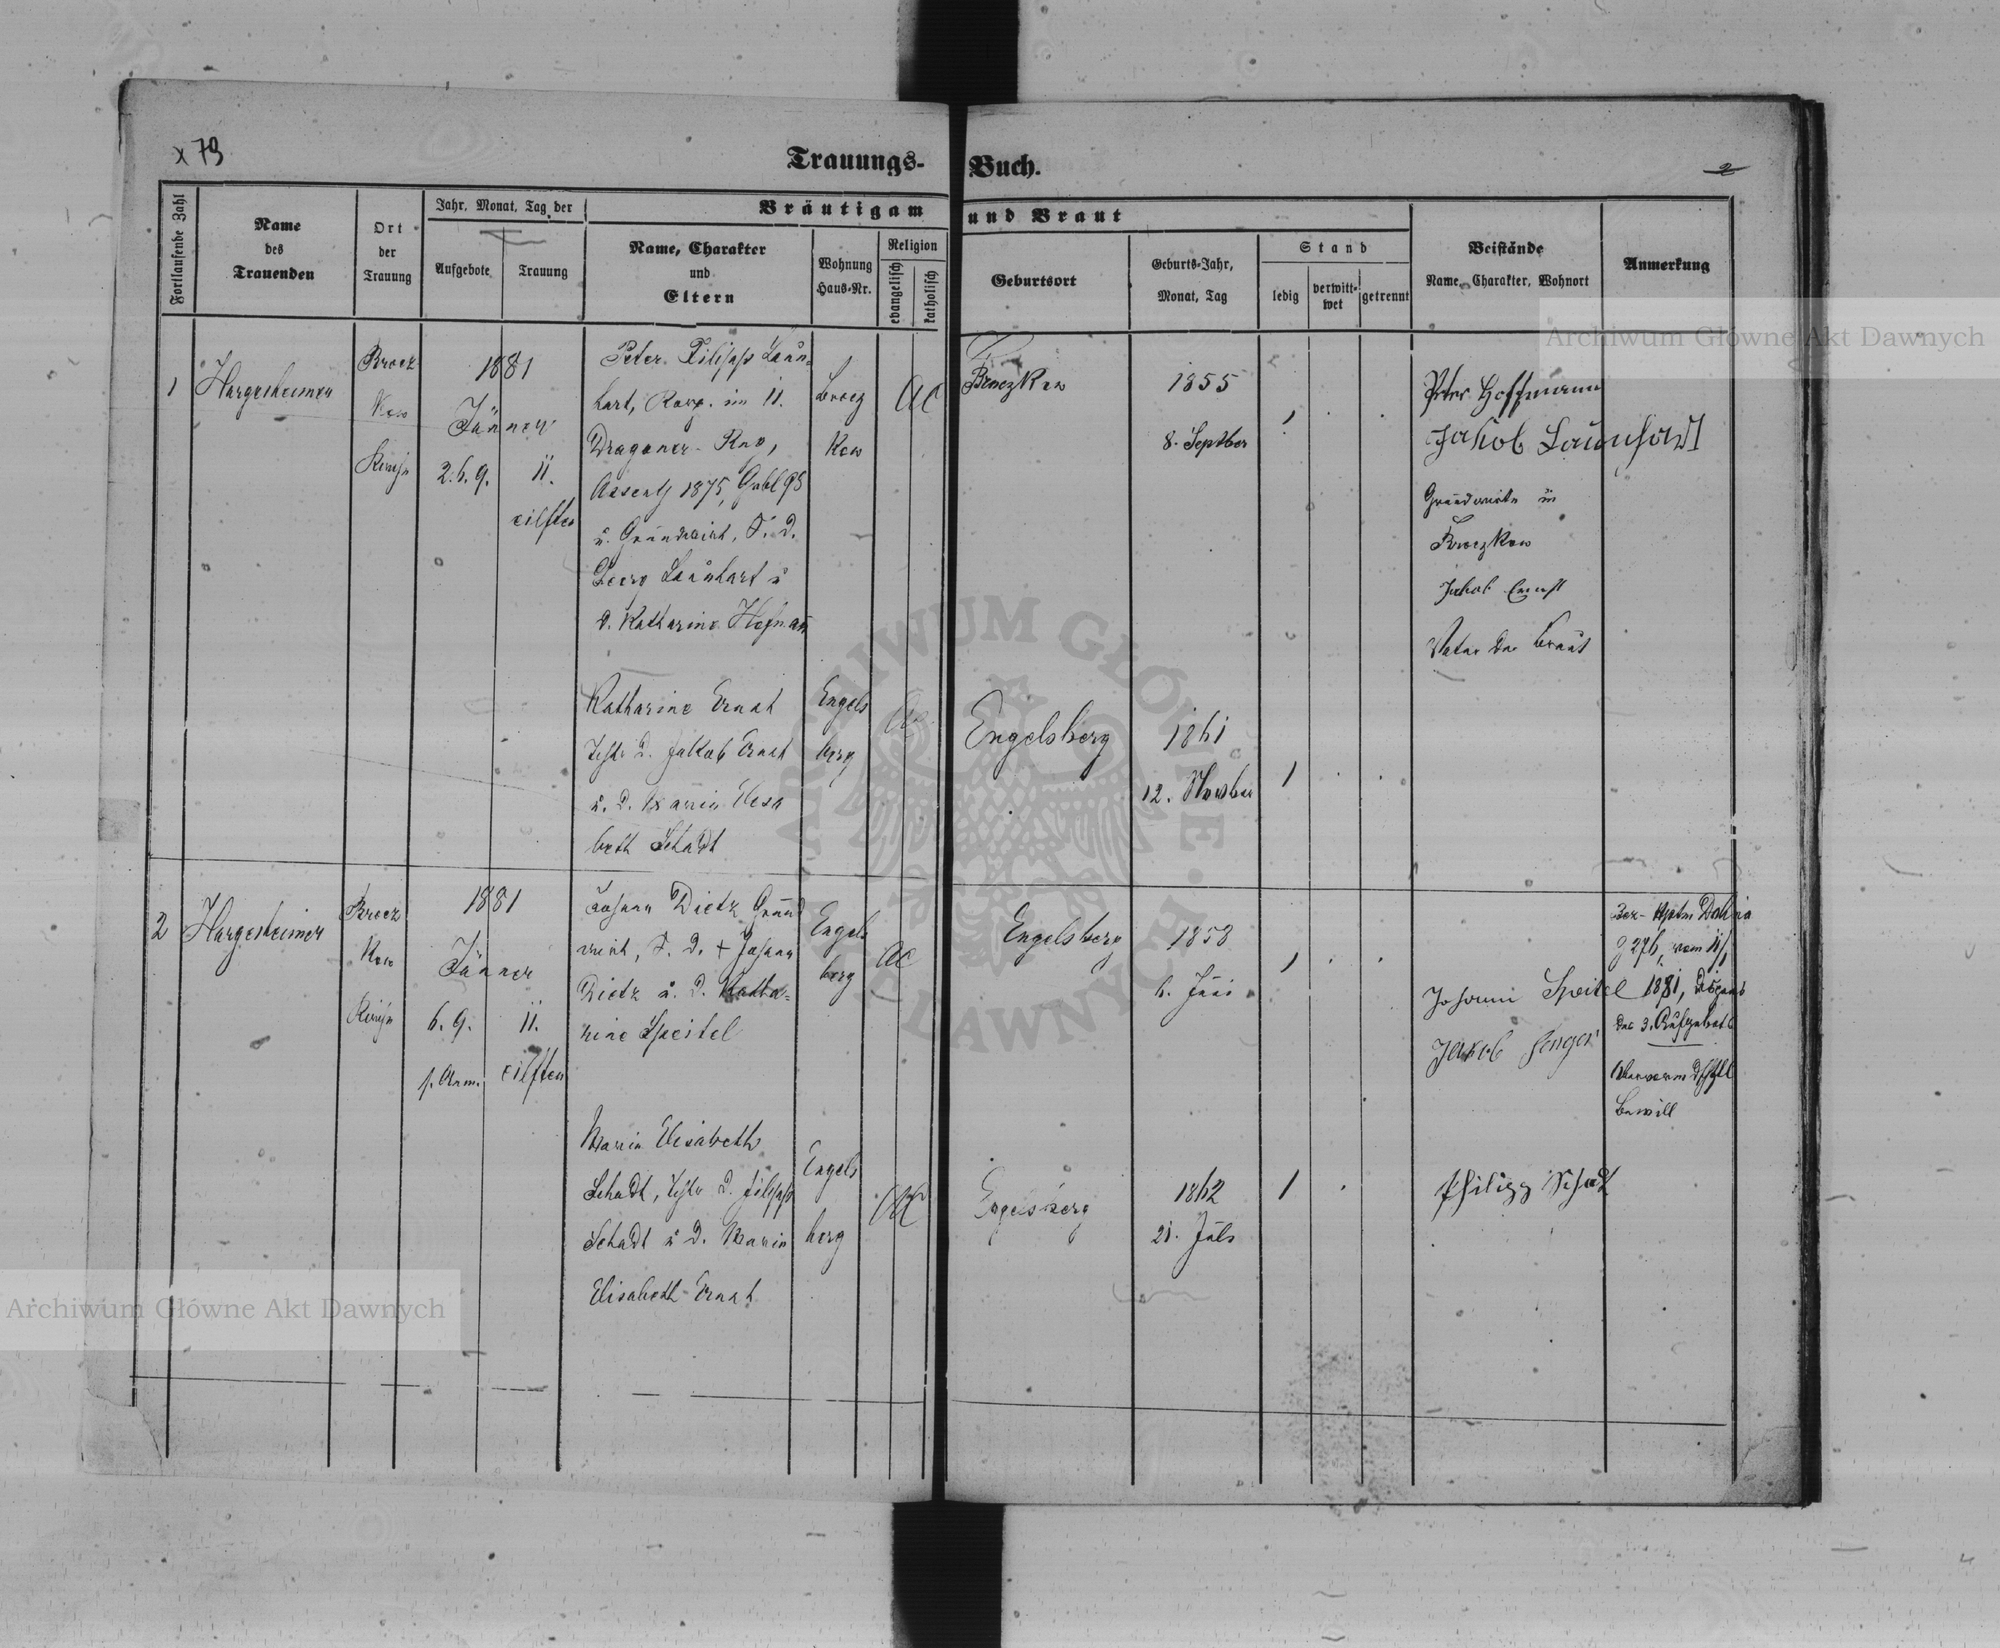 x 79
Trauungs-Buch.
2
Fortlaufende Zahl
Name
des
Trauenden
Ort
der
Trauung
Jahr, Monat, Tag der
Aufgebote
Trauung
Bräutigam und Braut
Name, Charakter
und
Eltern
Wohnung
Haus-Nr.
Religion
evangelisch
katholisch
Geburtsort
Geburts-Jahr,
Monat, Tag
Stand
ledig
verwitt-
wet
getrennt
Beistände
Name, Charakter, Wohnort
Anmerkung
1
Hargesheimer
Brocz
kow
1881
Jänner
2. 6. 9.
11.
eilften
Peter Filipp Laun-
hart, Korp. im 11.
Dragoner-Reg,
Assentj 1875, Gebl 98
u. Grundwirt, S. d.
Georg Launhart u
d. Katharina Hofmann
Brocz
kow
AC
Broczkow
1855
8. Septber
1
Peter Hoffmann
Jakob Launhardt
Grundwirte in
Broczkow
Jakob Ernst
Vater der Braut
Katharine Ernst
Tcht. d. Jakob Ernst
u. d. Maria Elisa
beth Schadt
Engels
berg
AC
Engelsberg
1861
12. Novber
1
2
Hargesheimer
Brocz
kow
1881
Jänner
6. 9.
11.
eilften
Johann Dietz Grund
wirt, S. d. + Johann
Dietz u. d. Katha-
rine Speitel
Engels
berg
AC
Engelsberg
1858
6. Juni
1
Johann Speitel
Jakob
Dolina
vom 11/1
1881, Dispens
des 3. Aufgebots
Bewill
Maria Elisabeth
Schadt, Tcht d. Filipp
Schadt u d. Maria
Elisabeth Ernst
Engels
berg
AC
Engelsberg
1862
21. Juli
1
Philipp Schadt
Archiwum Główne Akt Dawnych
Archiwum Główne Akt Dawnych
ARCHIWUM GŁÓWNE AKT DAWNYCH